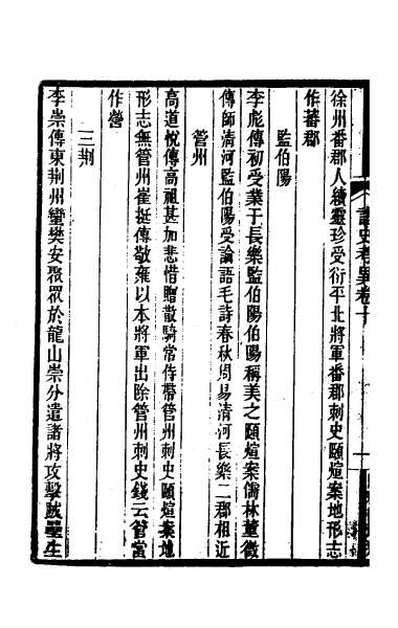 徐州番郡人續靈珍受衍平北將軍番郡刺史頤煊案地形志
作蕃郡
監伯陽
李彪傳初受業于長樂監伯陽伯陽稱美之頤煊案儒林董徵
傳師清河監伯陽受論語毛詩春秋周易清河長樂二郡相近
管州
高道悅傳高祖甚加悲惜贈散騎常侍帶管州刺史頤煊案地
形志無管州崔挺傳敬雍以本將軍出除管州刺史錢云管當
作營
三荆
李崇傳東荆州蠻樊安聚眾於龍山崇分遣諸將攻擊賊壘生
諸史考異卷十